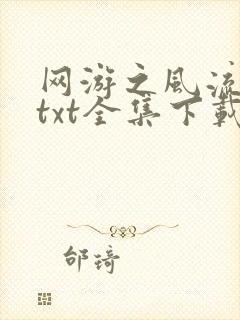 网游之风流
txt全集下载
邰琦